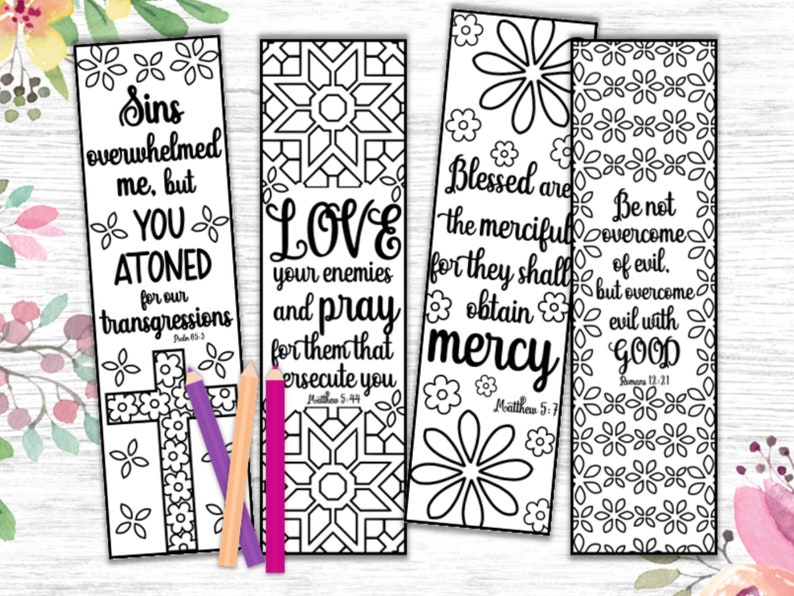 Sins
overwhelmed
me, but
YOU
ATONED
for our
transgressions
Psalm 65:3
LOVE
your enemies
and pray
for them that
persecute you
Matthew 5:44
Blessed are
the merciful
for they shall
obtain
mercy
Matthew 5:7
Be not
overcome
of evil,
but overcome
evil with
GOOD
Romans 12:21